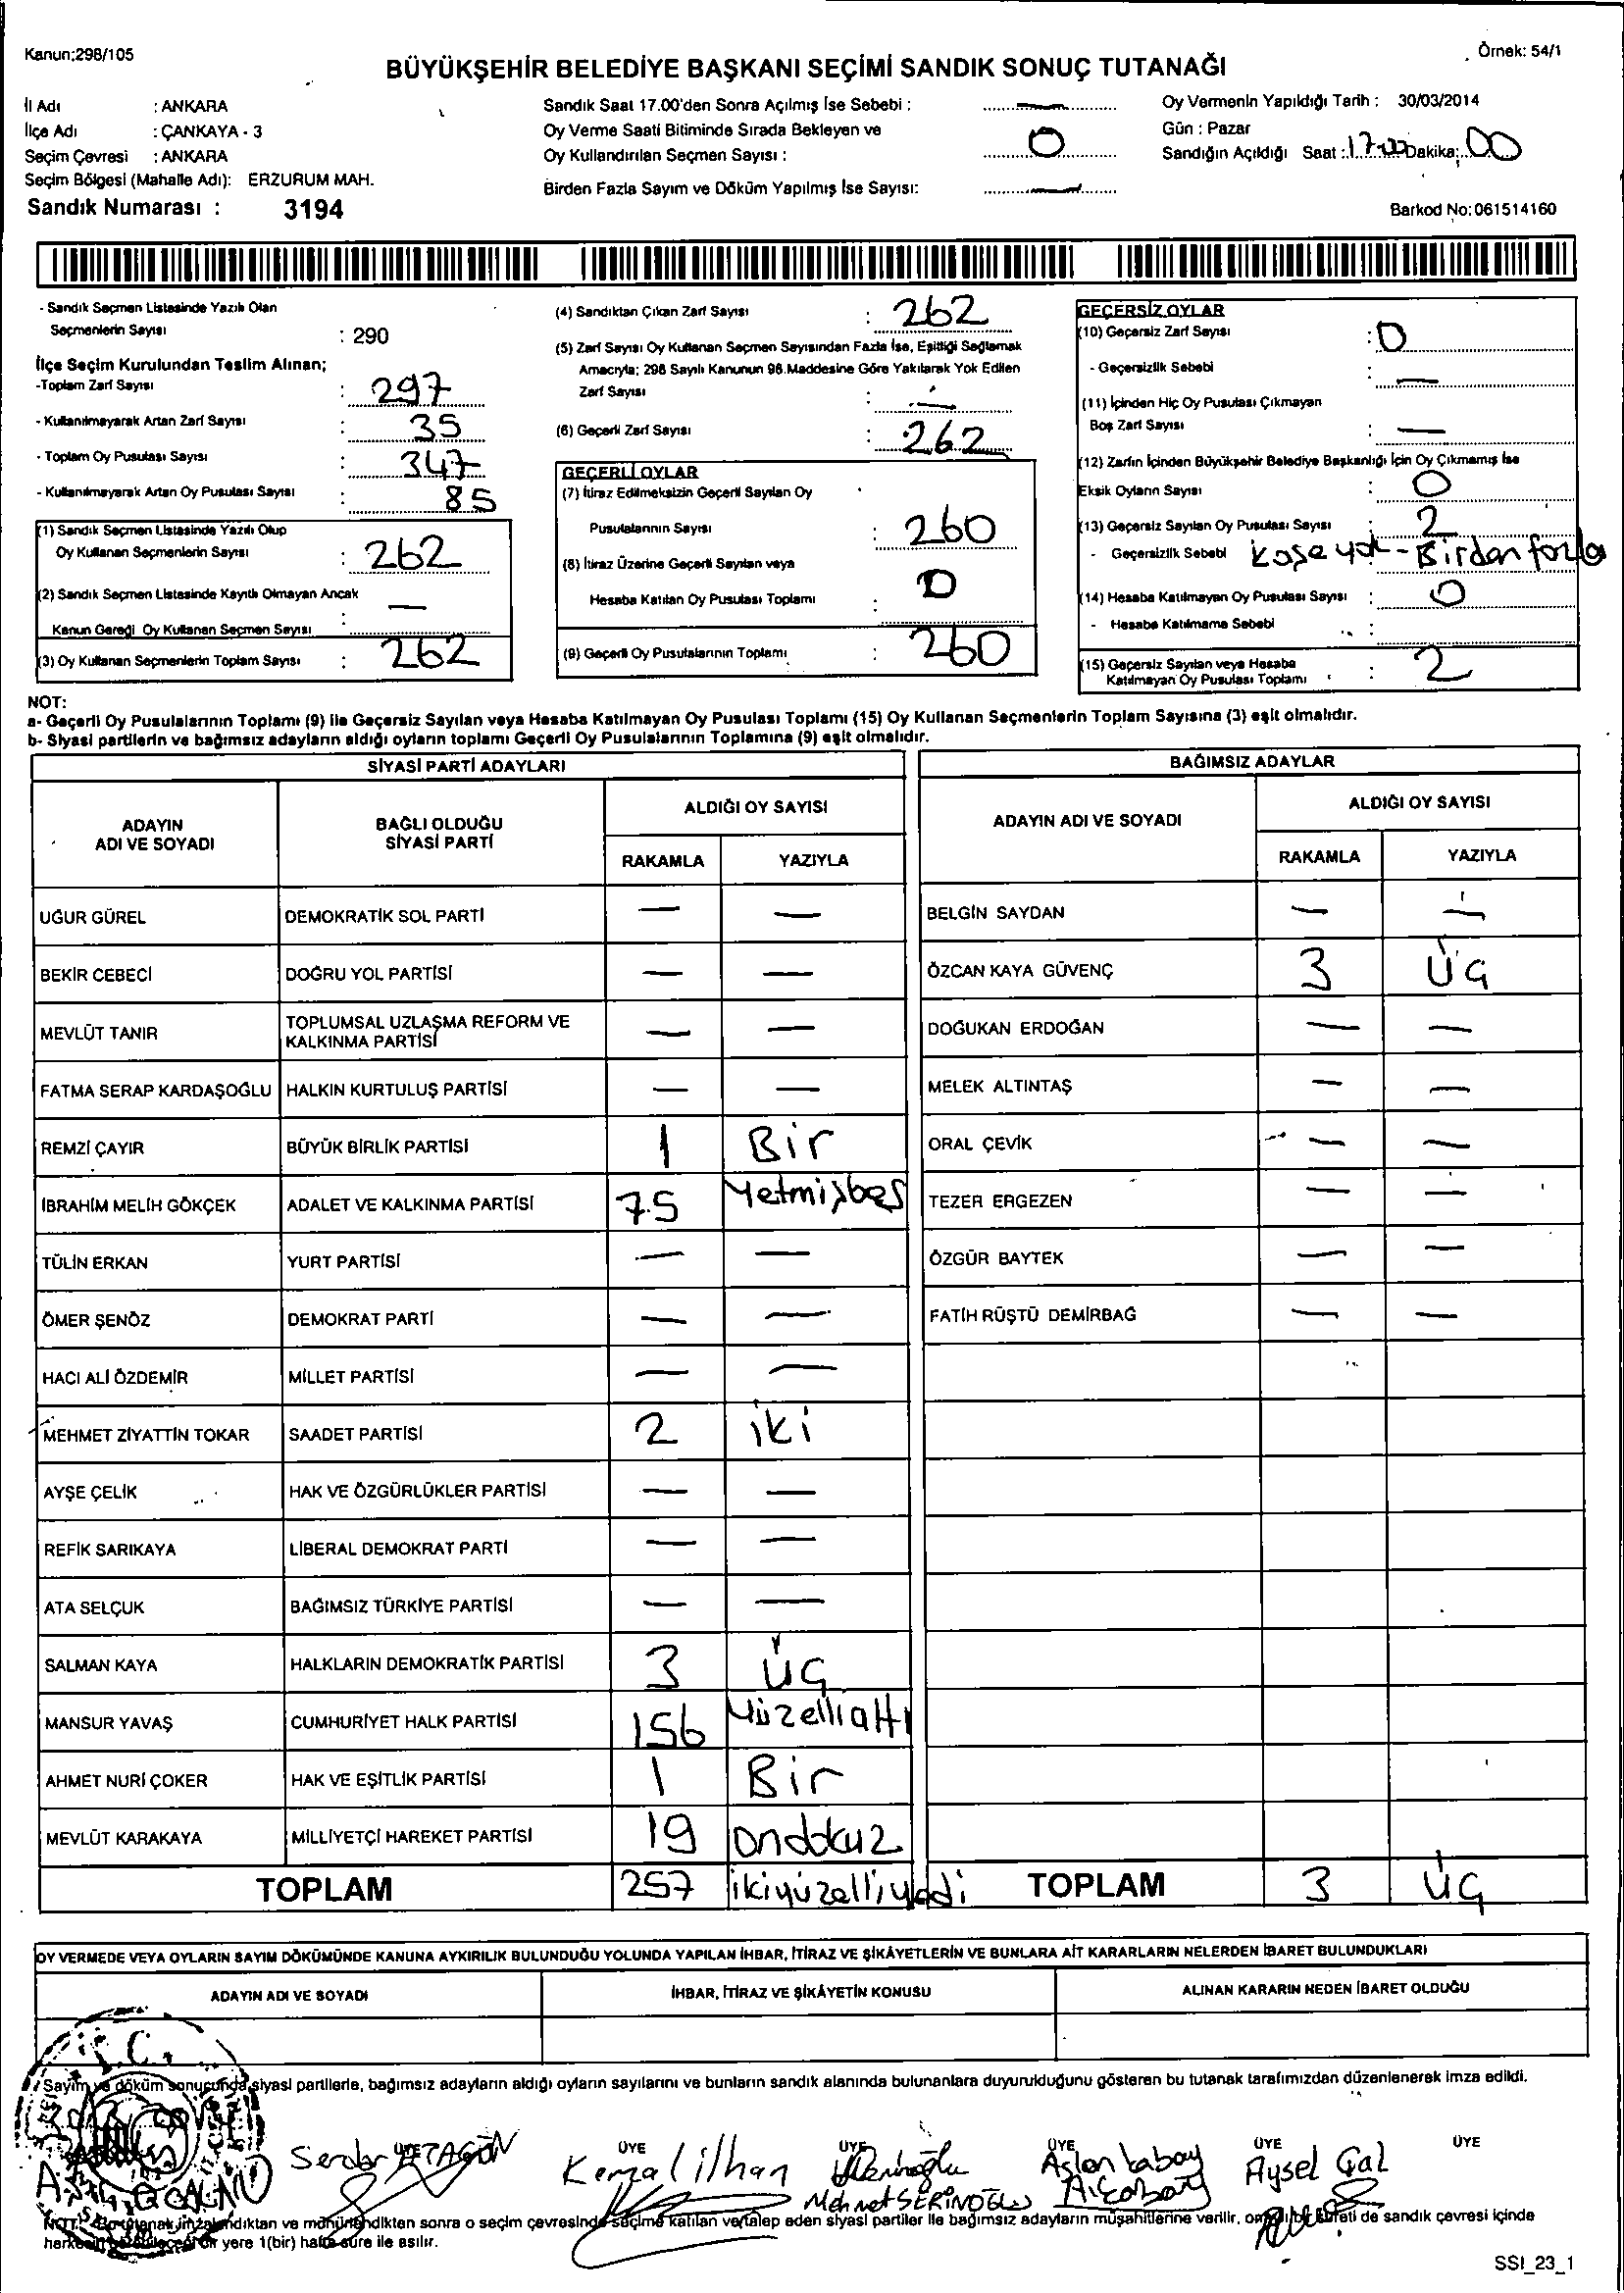 Kanun:298/105
Örnek: 54/1
BÜYÜKŞEHİR BELEDİYE BAŞKANI SEÇİMİ SANDIK SONUÇ TUTANAĞI
İl Adı : ANKARA
İlçe Adı : ÇANKAYA - 3
Seçim Çevresi : ANKARA
Seçim Bölgesi (Mahalle Adı): ERZURUM MAH.
Sandık Numarası : 3194
Sandık Saat 17.00'den Sonra Açılmış İse Sebebi : —
Oy Verme Saati Bitiminde Sırada Bekleyen ve
Oy Kullandırılan Seçmen Sayısı : 0
Birden Fazla Sayım ve Döküm Yapılmış İse Sayısı: —
Oy Vermenin Yapıldığı Tarih : 30/03/2014
Gün : Pazar
Sandığın Açıldığı Saat : 17.00 Dakika: 00
Barkod No: 061514160
- Sandık Seçmen Listesinde Yazılı Olan
Seçmenlerin Sayısı : 290
İlçe Seçim Kurulundan Teslim Alınan;
-Toplam Zarf Sayısı : 297
- Kullanılmayarak Artan Zarf Sayısı : 35
- Toplam Oy Pusulası Sayısı : 347
- Kullanılmayarak Artan Oy Pusulası Sayısı : 85
(1) Sandık Seçmen Listesinde Yazılı Olup
Oy Kullanan Seçmenlerin Sayısı : 262
(2) Sandık Seçmen Listesinde Kayıtlı Olmayan Ancak
Kanun Gereği Oy Kullanan Seçmen Sayısı : —
(3) Oy Kullanan Seçmenlerin Toplam Sayısı : 262
(4) Sandıktan Çıkan Zarf Sayısı : 262
(5) Zarf Sayısı Oy Kullanan Seçmen Sayısından Fazla İse, Eşitliği Sağlamak
Amacıyla; 298 Sayılı Kanunun 98.Maddesine Göre Yakılarak Yok Edilen
Zarf Sayısı : —
(6) Geçerli Zarf Sayısı : 262
GEÇERLİ OYLAR
(7) İtiraz Edilmeksizin Geçerli Sayılan Oy
Pusulalarının Sayısı : 260
(8) İtiraz Üzerine Geçerli Sayılan veya
Hesaba Katılan Oy Pusulası Toplamı : 0
(9) Geçerli Oy Pusulalarının Toplamı : 260
GEÇERSİZ OYLAR
(10) Geçersiz Zarf Sayısı : 0
- Geçersizlik Sebebi : —
(11) İçinden Hiç Oy Pusulası Çıkmayan
Boş Zarf Sayısı : —
(12) Zarfın İçinden Büyükşehir Belediye Başkanlığı İçin Oy Çıkmamış İse
Eksik Oyların Sayısı : 0
(13) Geçersiz Sayılan Oy Pusulası Sayısı : 2
- Geçersizlik Sebebi Kaşe yok - Birden fazla
(14) Hesaba Katılmayan Oy Pusulası Sayısı : 0
- Hesaba Katılmama Sebebi :
(15) Geçersiz Sayılan veya Hesaba
Katılmayan Oy Pusulası Toplamı : 2
NOT:
a- Geçerli Oy Pusulalarının Toplamı (9) ile Geçersiz Sayılan veya Hesaba Katılmayan Oy Pusulası Toplamı (15) Oy Kullanan Seçmenlerin Toplam Sayısına (3) eşit olmalıdır.
b- Siyasi partilerin ve bağımsız adayların aldığı oyların toplamı Geçerli Oy Pusulalarının Toplamına (9) eşit olmalıdır.
SİYASİ PARTİ ADAYLARI
ADAYIN ADI VE SOYADI BAĞLI OLDUĞU SİYASİ PARTİ ALDIĞI OY SAYISI
RAKAMLA YAZIYLA
UĞUR GÜREL DEMOKRATİK SOL PARTİ — —
BEKİR CEBECİ DOĞRU YOL PARTİSİ — —
MEVLÜT TANIR TOPLUMSAL UZLAŞMA REFORM VE KALKINMA PARTİSİ — —
FATMA SERAP KARDAŞOĞLU HALKIN KURTULUŞ PARTİSİ — —
REMZİ ÇAYIR BÜYÜK BİRLİK PARTİSİ 1 Bir
İBRAHİM MELİH GÖKÇEK ADALET VE KALKINMA PARTİSİ 75 Yetmişbeş
TÜLİN ERKAN YURT PARTİSİ — —
ÖMER ŞENÖZ DEMOKRAT PARTİ — —
HACI ALİ ÖZDEMİR MİLLET PARTİSİ — —
MEHMET ZİYATTİN TOKAR SAADET PARTİSİ 2 iki
AYŞE ÇELİK HAK VE ÖZGÜRLÜKLER PARTİSİ — —
REFİK SARIKAYA LİBERAL DEMOKRAT PARTİ — —
ATA SELÇUK BAĞIMSIZ TÜRKİYE PARTİSİ — —
SALMAN KAYA HALKLARIN DEMOKRATİK PARTİSİ 3 ÜÇ
MANSUR YAVAŞ CUMHURİYET HALK PARTİSİ 156 Yüzellialtı
AHMET NURİ ÇOKER HAK VE EŞİTLİK PARTİSİ 1 Bir
MEVLÜT KARAKAYA MİLLİYETÇİ HAREKET PARTİSİ 19 ondokuz
TOPLAM 257 ikiyüzelliyedi
BAĞIMSIZ ADAYLAR
ADAYIN ADI VE SOYADI ALDIĞI OY SAYISI
RAKAMLA YAZIYLA
BELGİN SAYDAN — —
ÖZCAN KAYA GÜVENÇ 3 ÜÇ
DOĞUKAN ERDOĞAN — —
MELEK ALTINTAŞ — —
ORAL ÇEVİK — —
TEZER ERGEZEN — —
ÖZGÜR BAYTEK — —
FATİH RÜŞTÜ DEMİRBAĞ — —
TOPLAM 3 ÜÇ
OY VERMEDE VEYA OYLARIN SAYIM DÖKÜMÜNDE KANUNA AYKIRILIK BULUNDUĞU YOLUNDA YAPILAN İHBAR, İTİRAZ VE ŞİKÂYETLERİN VE BUNLARA AİT KARARLARIN NELERDEN İBARET BULUNDUKLARI
ADAYIN ADI VE SOYADI İHBAR, İTİRAZ VE ŞİKÂYETİN KONUSU ALINAN KARARIN NEDEN İBARET OLDUĞU
T.C.
Sayım ve döküm sonucunda siyasi partilerle, bağımsız adayların aldığı oyların sayılarını ve bunların sandık alanında bulunanlara duyurulduğunu gösteren bu tutanak tarafımızdan düzenlenerek imza edildi.
ÜYE ÜYE ÜYE ÜYE ÜYE
Serdar Kemal ilhan Aslan Aysel
Mehmet SERİNOĞLU
NOT: Bu tutanak imzalandıktan ve mühürlendikten sonra o seçim çevresinde seçime katılan ve talep eden siyasi partiler ile bağımsız adayların müşahitlerine verilir, onaylı bir sureti de sandık çevresi içinde
yere 1(bir) hafta süre ile asılır.
SSI_23_1